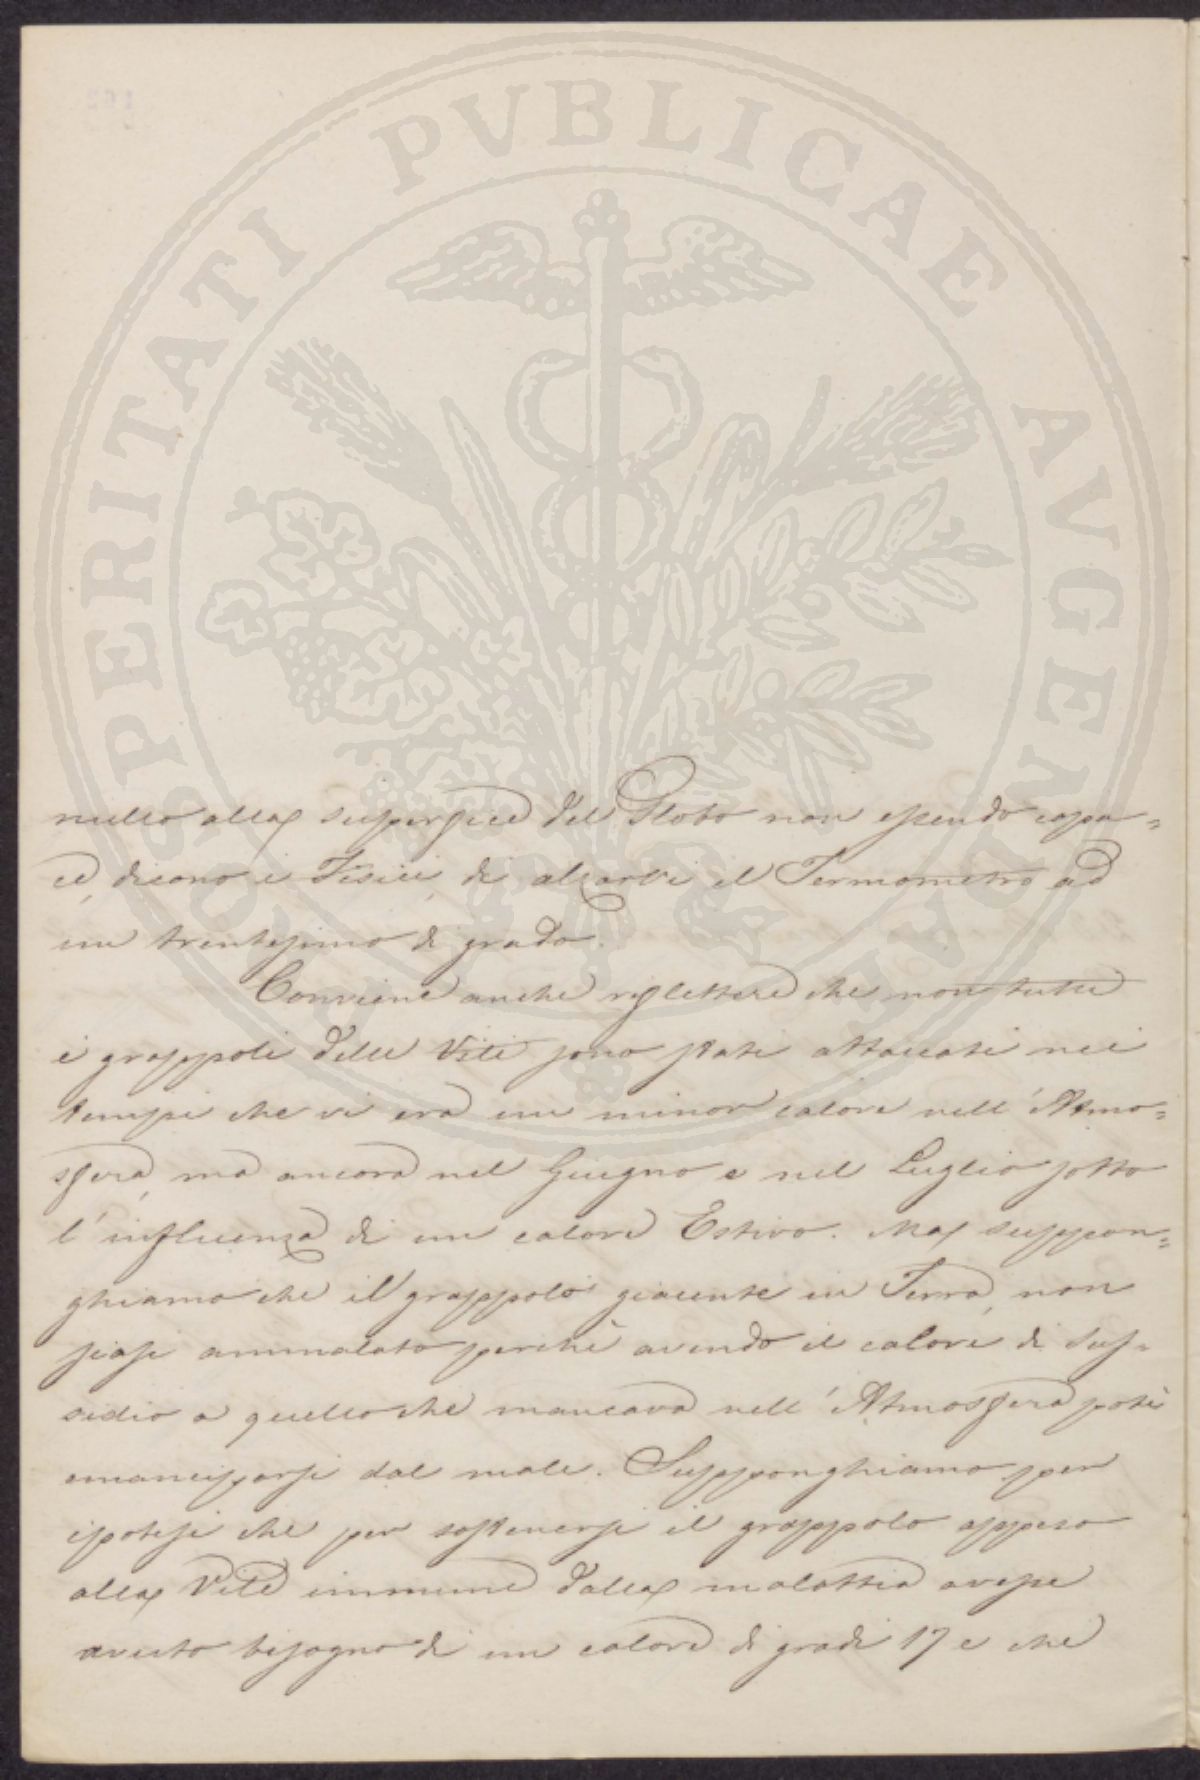 PROSPERITATI PUBLICAE AVGENDAE
nullo alla superficie del Globo non essendo capa=
ce, dicono i Fisici, di alzarvi il Termometro ad
un trentesimo di grado.
Conviene anche riflettere che non tutti
i grappoli delle Viti sono stati attaccati nei
tempi che vi era un minor calore nell'Atmo=
sfera, ma ancora nel Giugno e nel Luglio sotto
l'influenza di un calore Estivo. Ma suppon=
ghiamo che il grappolo giacente in Terra, non
siasi ammalato perchè avendo il calore di sus=
sidio a quello che mancava nell'Atmosfera potè
emanciparsi dal male. Supponghiamo per
ipotesi che per sostenersi il grappolo appeso
alla Vite immune dalla malattia avesse
avuto bisogno di un calore di gradi 17 e che